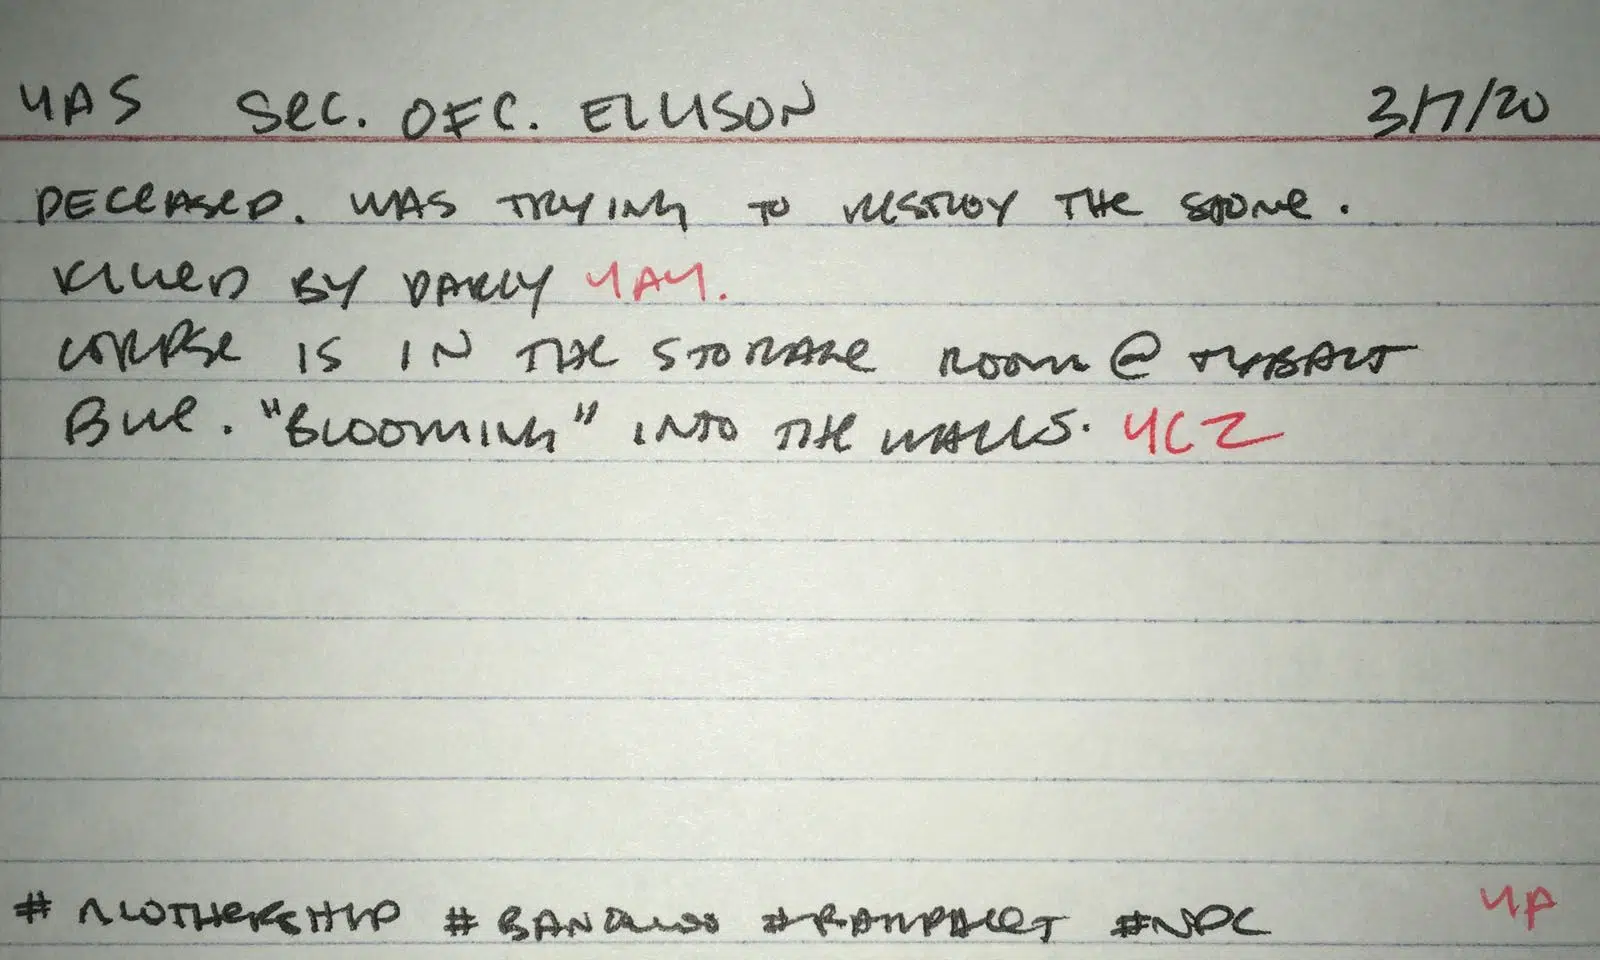 4A5 SEC. OFC. ELLISON 3/7/20
DECEASED. WAS TRYING TO DESTROY THE STONE.
KILLED BY DARLY 4A4.
CORPSE IS IN THE STORAGE ROOM @ TYBALT
BLUE. "BLOOMING" INTO THE WALLS. 4C2
# MOTHERSHIP # #NPC 4A